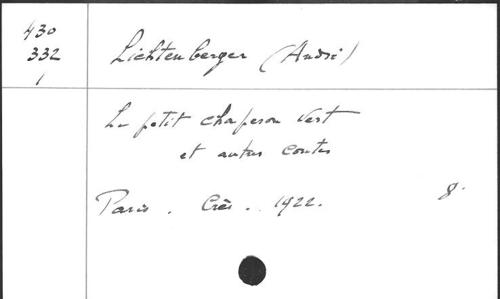 430
332
1
Lichtenberger (André)
Le petit chaperon vert
et autres contes
Paris. Crès. 1922. 8°